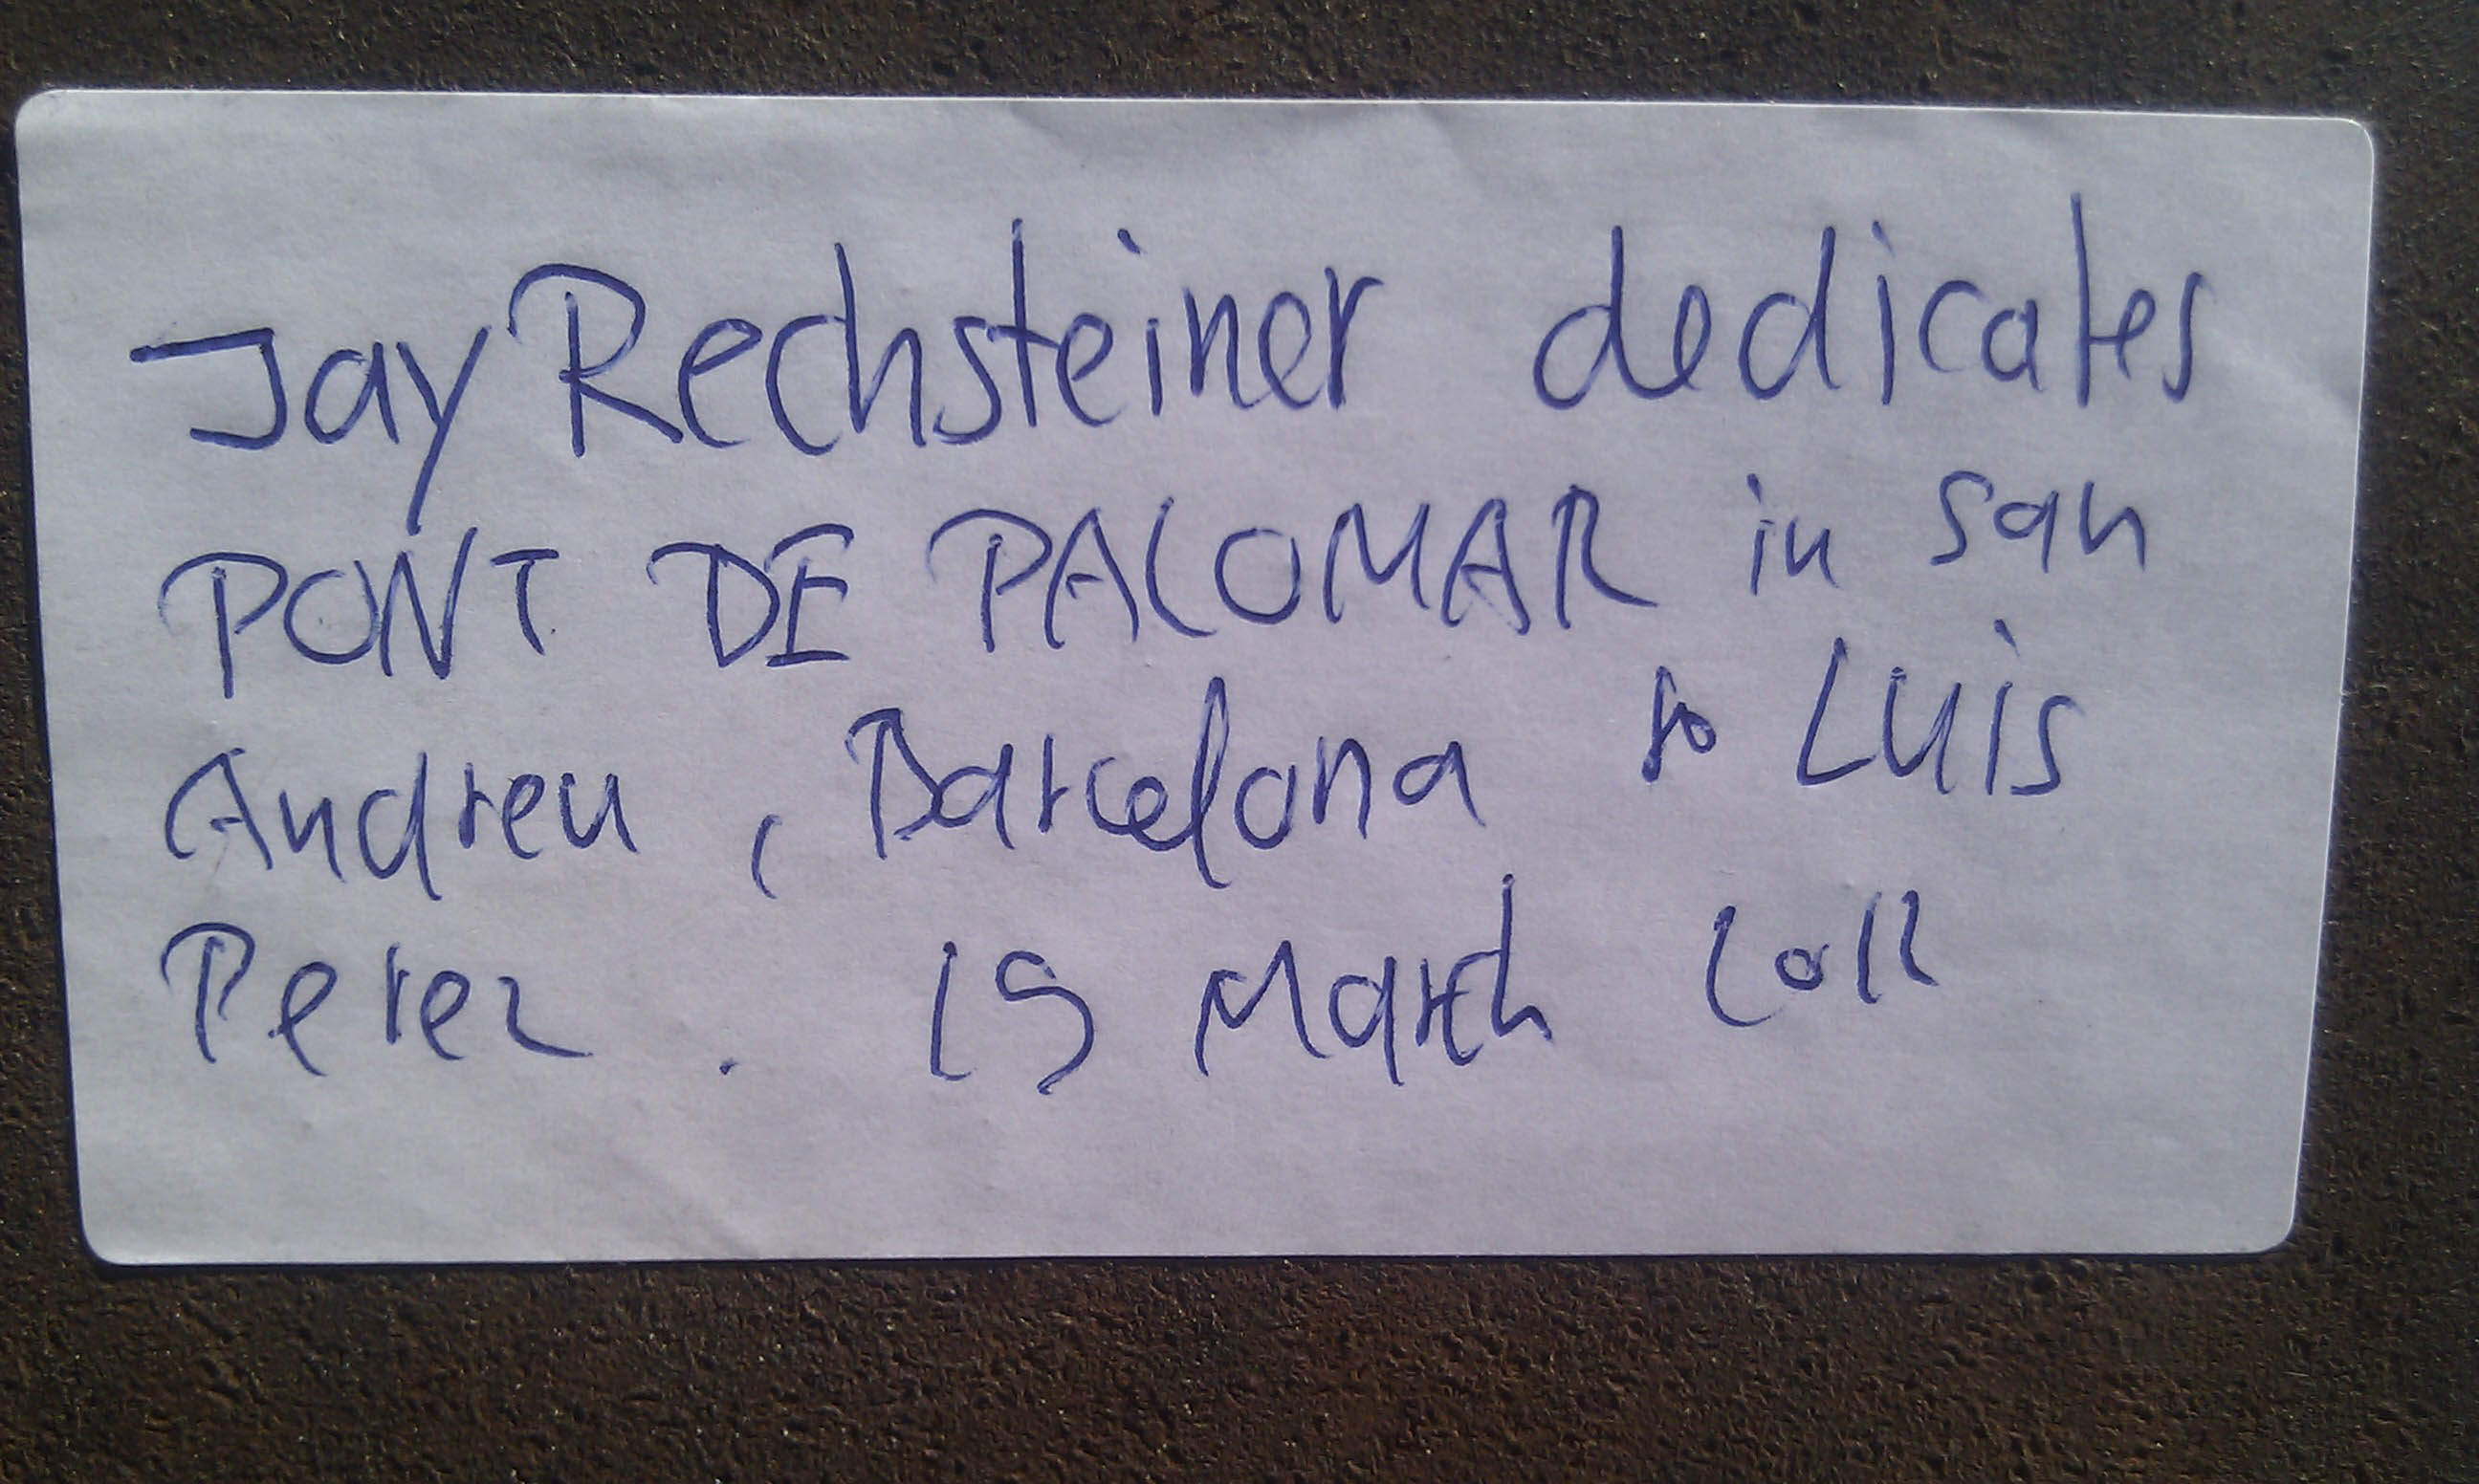 Jay Rechsteiner dedicates
PONT DE PALOMAR in San
Andreu, Barcelona to Luis
Perez. 19 March